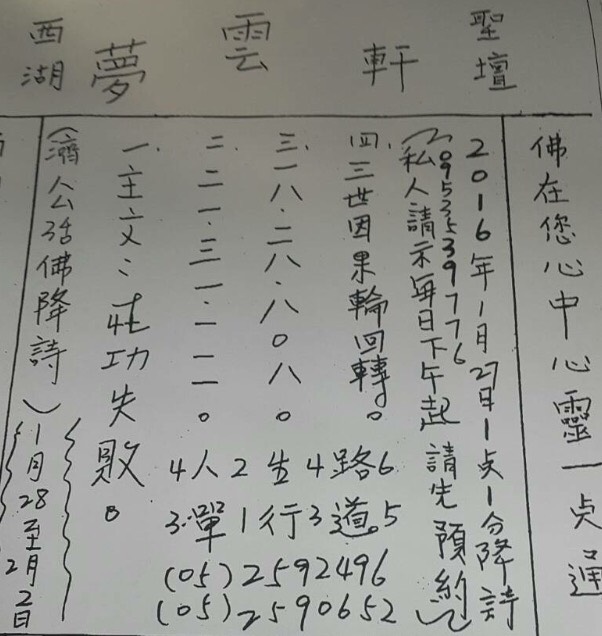 西湖 夢雲軒 聖壇
(濟公活佛降詩) 1月28至2月2日
一.主文:壯功失敗。
二.二一.三一.一一一。
三.一八.二八.八○八。
四.三世因果輪回轉。
4人2生4路6
3.單1行3道.5
(05)2592496
(05)2590652
(私人請示每日下午起請先預約)
0953539776
2016年1月27日1点1分降詩
佛在您心中心靈一点通